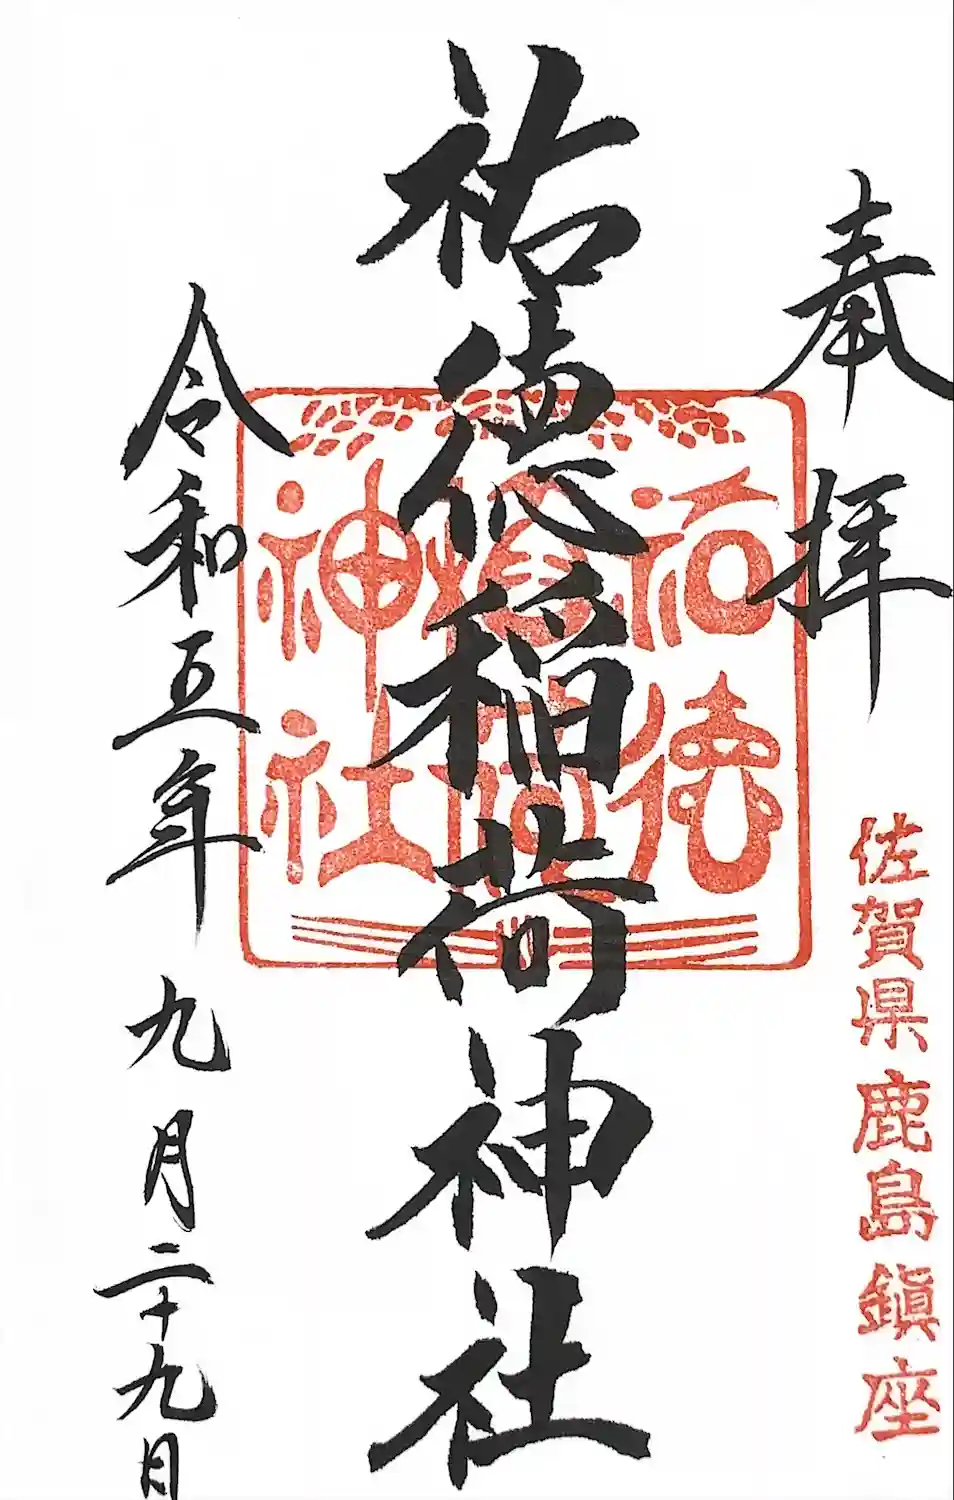 奉拝
佐賀県鹿島鎮座
祐徳稲荷神社
祐徳
稲荷
神社
令和五年九月二十九日